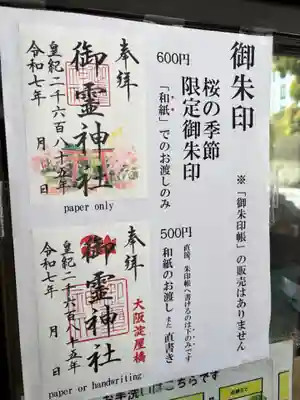 御朱印
※「御朱印帳」の販売はありません
600円
桜の季節
限定御朱印
「和紙」でのお渡しのみ
奉拝
御霊神社
皇紀二千六百八十五年
令和七年 月 日
paper only
500円
直接、朱印帳へ書けるのは下のみです
和紙のお渡し また 直書き
大阪淀屋橋
奉拝
御霊神社
皇紀二千六百八十五年
令和七年 月 日
paper or handwriting
お手洗いはこちらです